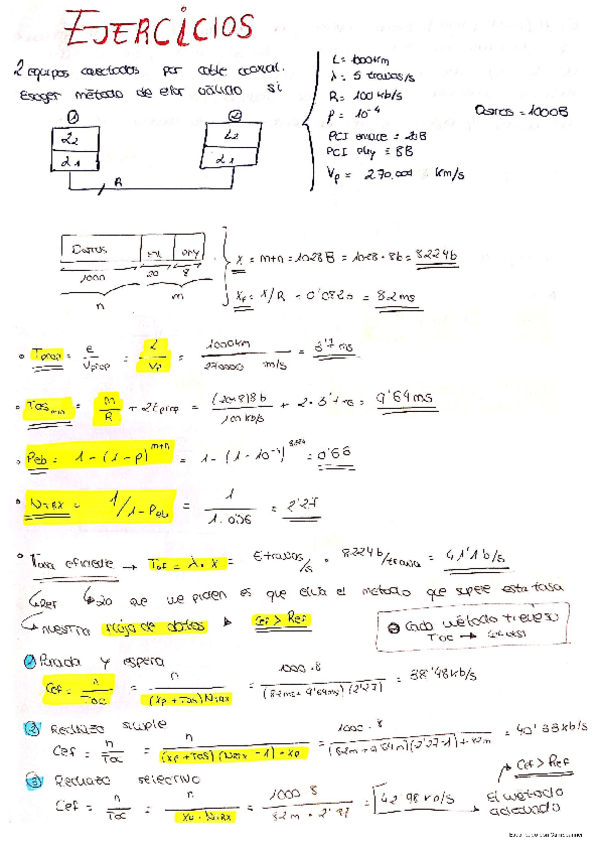 EJERCICIOS
2 equipos conectados por cable coaxial.
Escoger método de
L = 1000km
λ = 5 tramas/s
R = 100 kb/s
P = 10⁻⁴
PCI enlace = 20B
PCI phy = 8B
Vp = 270.000 km/s
Datos = 1000B
① ②
L2 L2
L1 L1
R
Datos ENL PHY
1000 20 8
n m
X = m+n = 1028B = 1028·8b = 8224b
Xp = X/R = 0'0822 = 82ms
Tprop = e/Vprop = L/Vp = 1000km/270000 m/s = 3'7 ms
Tas min = M/R + 2tprop = (20+8)8b/100kb/s + 2·3'7ms = 9'64ms
Peb = 1-(1-p)^m+n = 1-(1-10⁻⁴)^8224 = 0'56
Nmax = 1/1-Peb = 1/1-0'56 = 2'27
Tasa eficiente → Tef = λ·X = 5 tramas/s · 8224b/trama = 41'1b/s
Ref Lo que me piden es que elija el método que supere esta tasa
nuestra hoja de datos Cef > Ref
Cada método tiene su
Toc →
① Parada y espera
Cef = n/Toc = n/(Xp+Tas)Nmax = 1000·8/(82ms+9'64ms)(2'27) = 38'48kb/s
② Rechazo simple
Cef = n/Toc = n/(Xp+Tas)(Nmax-1)+Xp = 1000·8/(82m+9'64m)(2'27-1)+82m = 40'38kb/s
③ Rechazo selectivo
Cef > Ref
Cef = n/Toc = n/Xp·Nmax = 1000·8/82m·2'27 = 42'98kb/s → El método
adecuado